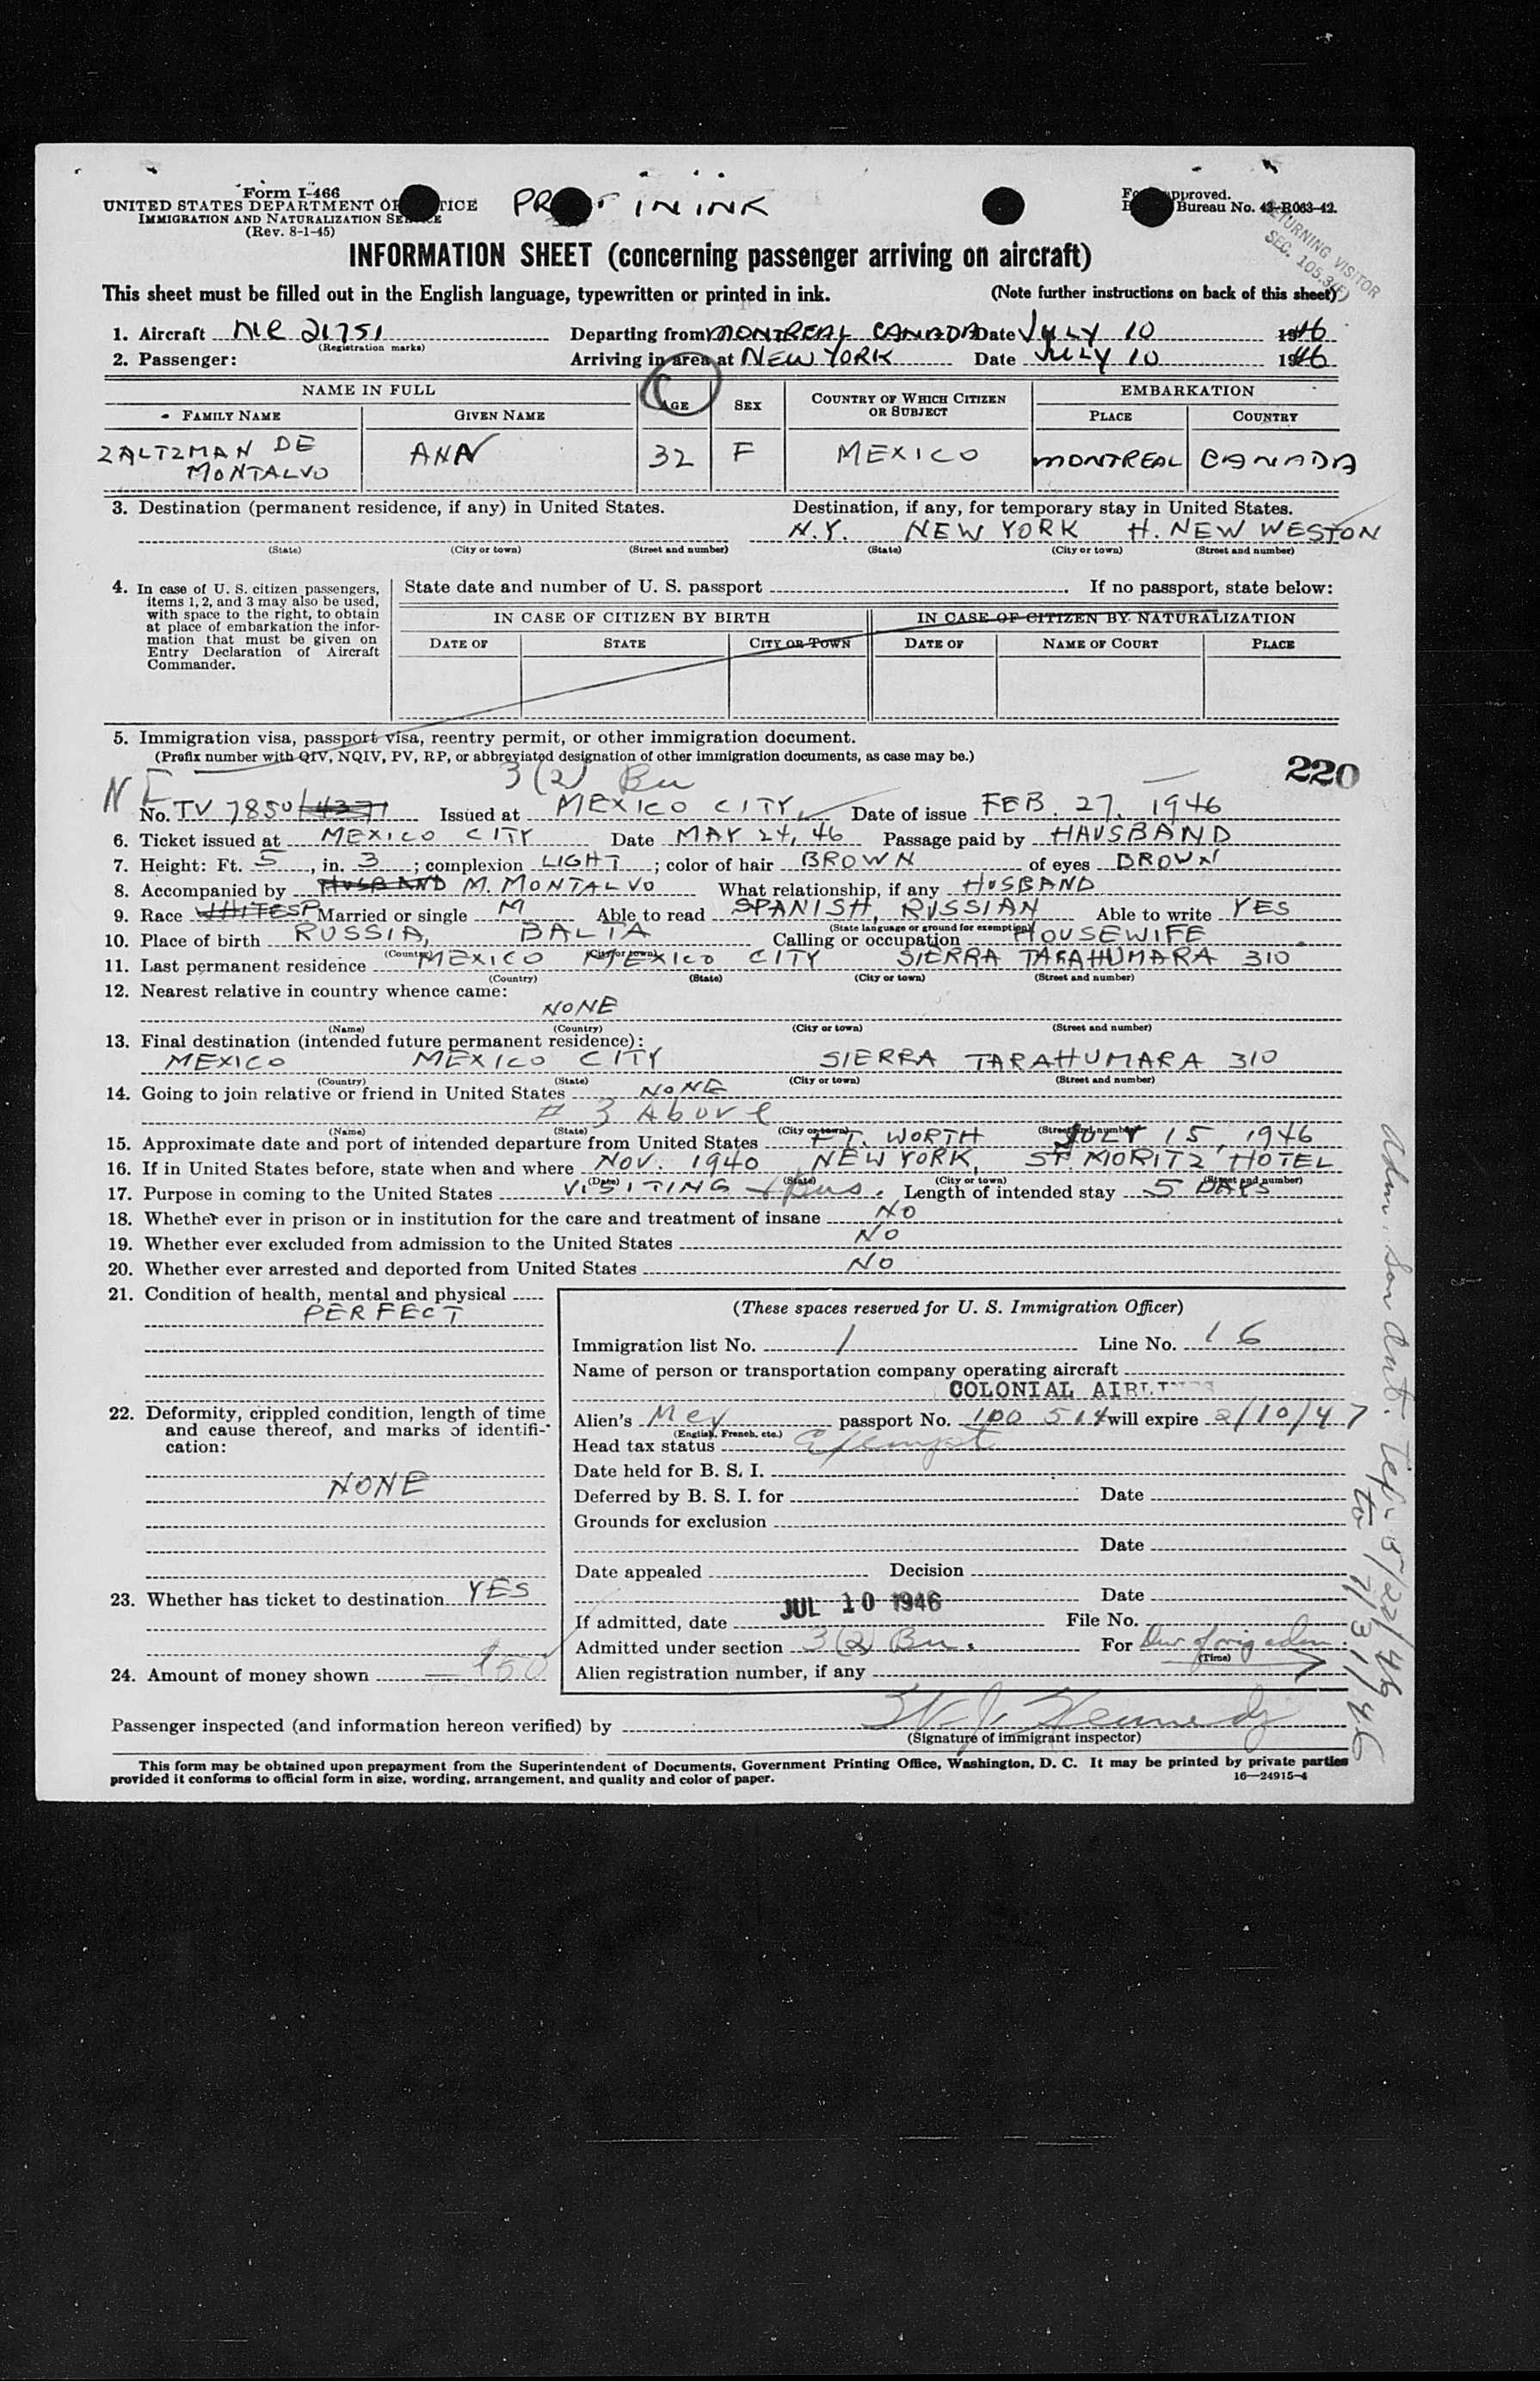 Form I-466
UNITED STATES DEPARTMENT OF JUSTICE
IMMIGRATION AND NATURALIZATION SERVICE
(Rev. 8-1-45)
PRINT IN INK
Form approved.
Bureau No. 43-R063-42.
RETURNING VISITOR
SEC. 105.3(F)
INFORMATION SHEET (concerning passenger arriving on aircraft)
This sheet must be filled out in the English language, typewritten or printed in ink. (Note further instructions on back of this sheet)
1. Aircraft NC 21751 Departing from MONTREAL CANADA Date JULY 10 1946
(Registration marks)
2. Passenger: Arriving in area at NEW YORK Date JULY 10 1946
NAME IN FULL AGE SEX COUNTRY OF WHICH CITIZEN OR SUBJECT EMBARKATION
FAMILY NAME GIVEN NAME PLACE COUNTRY
ZALTZMAN DE MONTALVO ANN 32 F MEXICO MONTREAL CANADA
3. Destination (permanent residence, if any) in United States. Destination, if any, for temporary stay in United States.
N.Y. NEW YORK H. NEW WESTON
(State) (City or town) (Street and number) (State) (City or town) (Street and number)
4. In case of U. S. citizen passengers, items 1, 2, and 3 may also be used, with space to the right, to obtain at place of embarkation the information that must be given on Entry Declaration of Aircraft Commander.
State date and number of U. S. passport . If no passport, state below:
IN CASE OF CITIZEN BY BIRTH IN CASE OF CITIZEN BY NATURALIZATION
DATE OF STATE CITY OR TOWN DATE OF NAME OF COURT PLACE
5. Immigration visa, passport visa, reentry permit, or other immigration document.
(Prefix number with QIV, NQIV, PV, RP, or abbreviated designation of other immigration documents, as case may be.)
220
3(2) Bu
No. TV 7850/4371 Issued at MEXICO CITY Date of issue FEB. 27, 1946
6. Ticket issued at MEXICO CITY Date MAY 24, 46 Passage paid by HAUSBAND
7. Height: Ft. 5, in. 3; complexion LIGHT; color of hair BROWN of eyes BROWN
8. Accompanied by HUSBAND M. MONTALVO What relationship, if any HUSBAND
9. Race WHITE SP Married or single M Able to read SPANISH, RUSSIAN Able to write YES
(State language or ground for exemption)
10. Place of birth RUSSIA, BALTA Calling or occupation HOUSEWIFE
(Country) (City or town)
11. Last permanent residence MEXICO MEXICO CITY SIERRA TARAHUMARA 310
(Country) (State) (City or town) (Street and number)
12. Nearest relative in country whence came:
NONE
(Name) (Country) (City or town) (Street and number)
13. Final destination (intended future permanent residence):
MEXICO MEXICO CITY SIERRA TARAHUMARA 310
(Country) (State) (City or town) (Street and number)
14. Going to join relative or friend in United States NONE
# 3 Above
(Name) (State) (City or town) (Street and number)
15. Approximate date and port of intended departure from United States FT. WORTH JULY 15, 1946
16. If in United States before, state when and where NOV. 1940 NEW YORK, ST. MORITZ HOTEL
(Date) (State) (City or town) (Street and number)
17. Purpose in coming to the United States VISITING + Bus. Length of intended stay 5 DAYS
18. Whether ever in prison or in institution for the care and treatment of insane NO
19. Whether ever excluded from admission to the United States NO
20. Whether ever arrested and deported from United States NO
21. Condition of health, mental and physical
PERFECT
22. Deformity, crippled condition, length of time and cause thereof, and marks of identification:
NONE
23. Whether has ticket to destination YES
24. Amount of money shown $50
(These spaces reserved for U. S. Immigration Officer)
Immigration list No. 1 Line No. 16
Name of person or transportation company operating aircraft
COLONIAL AIRLINES
Alien's Mex passport No. 100 514 will expire 2/10/47
(English, French, etc.)
Head tax status Exempt
Date held for B. S. I.
Deferred by B. S. I. for Date
Grounds for exclusion
Date
Date appealed Decision
Date
If admitted, date JUL 10 1946 File No.
Admitted under section 3(2) Bu. For Dur of orig adm.
(Time)
Alien registration number, if any
Passenger inspected (and information hereon verified) by W. J. Kennedy
(Signature of immigrant inspector)
This form may be obtained upon prepayment from the Superintendent of Documents, Government Printing Office, Washington, D. C. It may be printed by private parties
provided it conforms to official form in size, wording, arrangement, and quality and color of paper. 16—24915-4
Adm. San Ant. Tex. 5/22/46
to 7/31/46